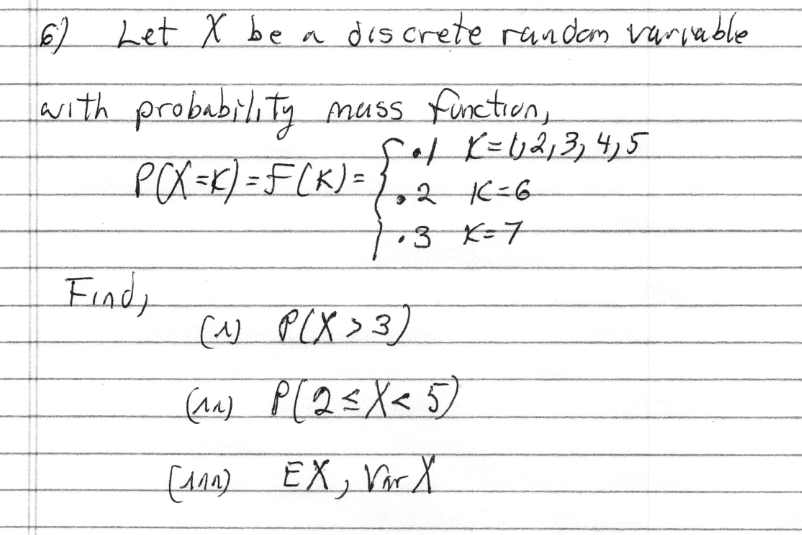 6) Let X be a discrete random variable
with probability mass function,
P(X=K)=F(K)= { .1 K=1,2,3,4,5
.2 K=6
.3 K=7
Find,
(i) P(X>3)
(ii) P(2≤X<5)
(iii) EX, Var X